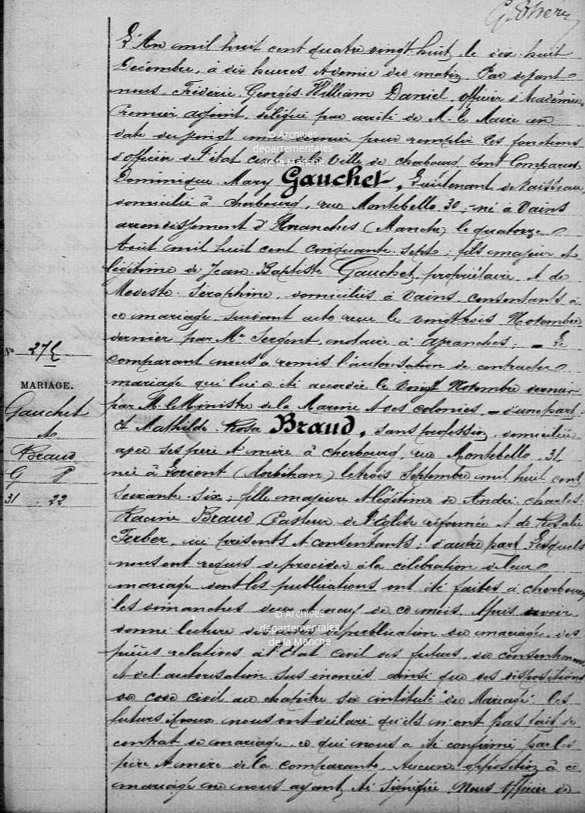 L'An mil huit cent quatre vingt huit, le dix huit
Décembre, à dix heures et demie du matin. Par devant
nous, Frédéric Georges William Daniel, officier d'Académie
Premier adjoint, délégué par arrêté de M. le Maire en
date du pour remplir les fonctions
d'officier de l'état civil de la Ville de Cherbourg, sont Comparus
Dominique Mary Gauchet, Lieutenant de Vaisseau
domicilié à Cherbourg, rue Montebello 30, né à Vains
arrondissement d'Avranches (Manche) le quatorze
Août mil huit cent cinquante sept, fils majeur et
légitime de Jean Baptiste Gauchet, propriétaire, et de
Modeste Séraphine, domiciliés à Vains, consentants à
ce mariage suivant acte reçu le vingt trois Novembre
dernier par Me Sergent notaire à Avranches, Le
comparant nous a remis l'autorisation de contracter
mariage qui lui a été accordée le vingt Novembre dernier
par M. le Ministre de la Marine et des colonies, d'une part
Et Mathilde Rosa Braud, sans profession, domiciliée
avec ses père et mère à Cherbourg, rue Montebello 31
née à Lorient (Morbihan) le trois Septembre mil huit cent
soixante six; fille majeure et légitime de André Charles
Racine Braud Pasteur de l'Eglise réformée et de Rosalie
Ferber, ici présents et consentants; d'autre part, Lesquels
nous ont requis de procéder à la célébration de leur
mariage dont les publications ont été faites à Cherbourg
les dimanches deux et neuf de ce mois. Après avoir
donné lecture des actes de publication de mariage, des
pièces relatives à l'Etat Civil des futurs, du consentement
et de l'autorisation sus énoncés ainsi que des dispositions
du code civil au chapitre six intitulé du Mariage. Les
futurs époux nous ont déclaré qu'ils n'ont pas fait de
contrat de mariage, ce qui nous a été confirmé par les
père et mère de la comparante. Aucune opposition à ce
mariage ne nous ayant été signifiée, Nous Officier de
N° 275
MARIAGE.
Gauchet
et
Braud
G P
31 . 22
© Archives
départementales
de la Manche
© Archives
départementales
de la Manche